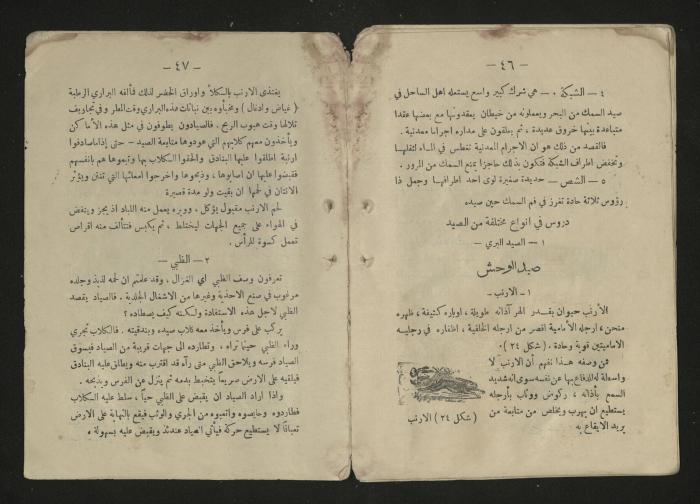 — ٤٦ —
٤ — الشبكة . — هي شرك كبير واسع يستعمله اهل الساحل في
صيد السمك من البحر ويعملونه من خيطان يعقدونها مع بعضها عقداً
متباعدة بينها خروق عديدة ، ثم يعلقون على مداره اجراما معدنية .
فالقصد من ذلك هو ان الاجرام المعدنية تغطس في الماء لثقلها
وتخفض اطراف الشبكة فتكون بذلك حاجزاً يمنع السمك من المرور .
٥ — الشص — حديدة صغيرة لوى احد اطرافها وجعل ذا
رؤوس ثلاثة حادة تغرز في فم السمك حين صيده
دروس في انواع مختلفة من الصيد
١ — الصيد البري —
صيد الوحش
١ — الارنب —
الأرنب حيوان بقدر الهر آذانه طويلة ، اوباره كثيفة ، ظهره
منحن ، ارجله الأمامية اقصر من ارجله الخلفية ، اظفاره في رجليه
الاماميتين قوية وحادة . ( شكل ٢٤ ) .
فمن وصفه هذا نفهم أن الارنب لا
واسطة له للدفاع بها عن نفسه سوى انه شديد
السمع بآذانه ، ركوض ووثاب بأرجله
يستطيع ان يهرب ويخلص من متابعة من
يريد الايقاع به
( شكل ٢٤ ) الارنب
— ٤٧ —
يغتذى الارنب بالكلأ واوراق الخضر لذلك فألفه البراري الرطبة
( غياض وادغال ) ومخبأوه بين نباتات هذه البراري وقت المطر وفي تجاويف
تلالها وقت هبوب الريح . فالصيادون يطوفون في مثل هذه الأماكن
ويأخذون معهم كلابهم التي عودوها متابعة الصيد — حتى إذا ماصادفوا
ارنبة اطلقوا عليها البنادق والحقوا الكلاب بها وتبعوها هم بانفسهم
فقبضوا عليها ان اصابوها ، وذبحوها واخرجوا امعائها التي تنتن ويؤثر
الانتان في لحمها ان بقيت ولو مدة قصيرة
لحم الارنب مقبول يؤكل ، ووبره يعمل منه اللباد اذ يجز وينفض
في الهواء على جميع الجهات ليختلط ، ثم يكبس فتتألف منه اقراص
تعمل كسوة للرأس .
٢ — الظبي —
تعرفون وصف الظبي اي الغزال . وقد علمتم ان لحمه لذيذ وجلده
مرغوب في صنع الاحذية وغيرها من الاشغال الجلدية . فالصياد يقصد
الظبي لاجل هذه الاستفادة ولكنه كيف يصطاده ؟
يركب على فرس ويأخذ معه كلاب صيده وبندقيته . فالكلاب تجري
وراء الظبي حينما تراه ، وتطارده الى جهات قريبة من الصياد فيسوق
الصياد فرسه ويلاحق الظبي متى رآه قد اقترب منه ويطلق عليه البنادق
فيلقيه على الارض صريعاً يتخبط بدمه ثم ينزل عن الفرس ويذبحه .
واذا اراد الصياد ان يقبض على الظبي حياً ، سلط عليه الكلاب
فطاردوه وحاصوه واتعبوه من الجري والوثب فيقع بالنهاية على الارض
تعباناً لا يستطيع حركة فيأتي الصياد عندئذ ويقبض عليه بسهولة .